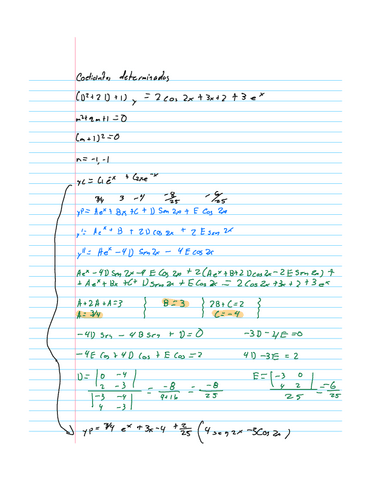 Coeficientes determinados
(D²+2D+1) y = 2 cos 2x + 3x + 2 + 3 eˣ
m²+2m+1=0
(m+1)²=0
m=-1,-1
yc = C₁ēˣ + C₂xe⁻ˣ
3/4 3 -4 -8/25 -6/25
yp= Aeˣ + Bx + C + D Sen 2x + E Cos 2x
y'= Aeˣ + B + 2D Cos 2x + 2E Sen 2x
y''= Aeˣ -4D Sen 2x - 4E Cos 2x
Aeˣ -4D Sen 2x -4 E Cos 2x + 2(Aeˣ+B+2D cos 2x -2E Sen 2x) +
+ Aeˣ + Bx + C + D Sen 2x + E Cos 2x = 2 Cos 2x + 3x + 2 + 3eˣ
A+2A+A=3 B=3 2B+C=2
A=3/4 C=-4
-4D Sen - 4E Sen + D=0 -3D-4E=0
-4E Cos + 4D Cos + E Cos =2 4D-3E=2
D= |0 -4| E= |-3 0|
|2 -3| = -8 = -8 |4 2| = -6
|-3 -4| 9+16 25 25 25
|4 -3|
yp = 3/4 eˣ + 3x -4 + 2/25 (4 sen 2x -3Cos 2x)